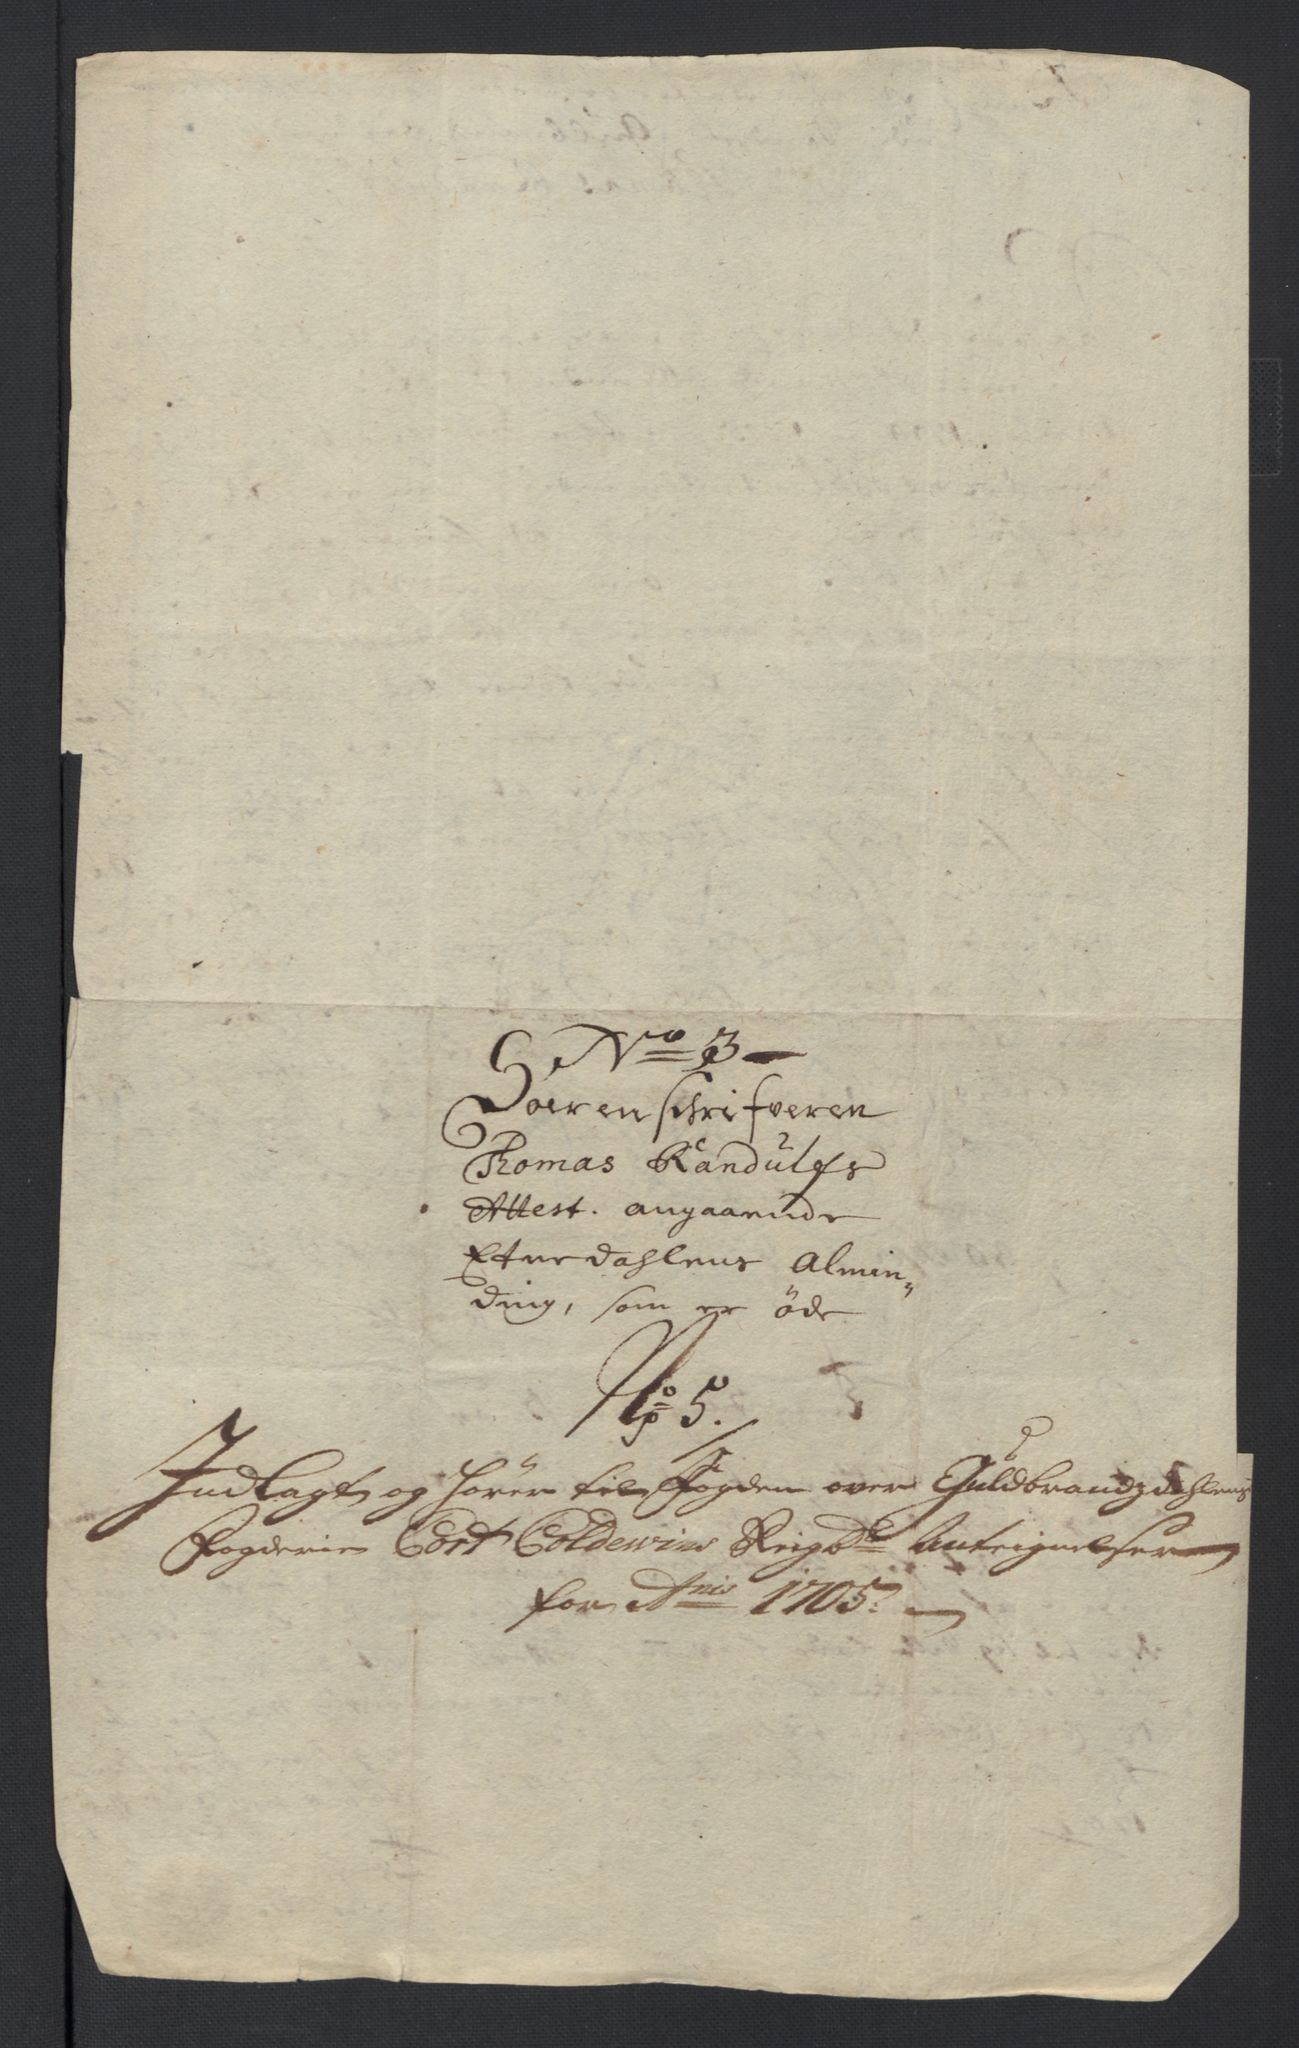 No 3
Sorenschrifveren
Thomas Randulfs
Attest. angaaende
Etnedahlens Almin„
ding, som er öde
No 5.
Indlagt og hörer til Fogden over Guldbrandzdahlens
Fogderie Cort Coldewins Regnb: Anteignelser
for Anis 1705.